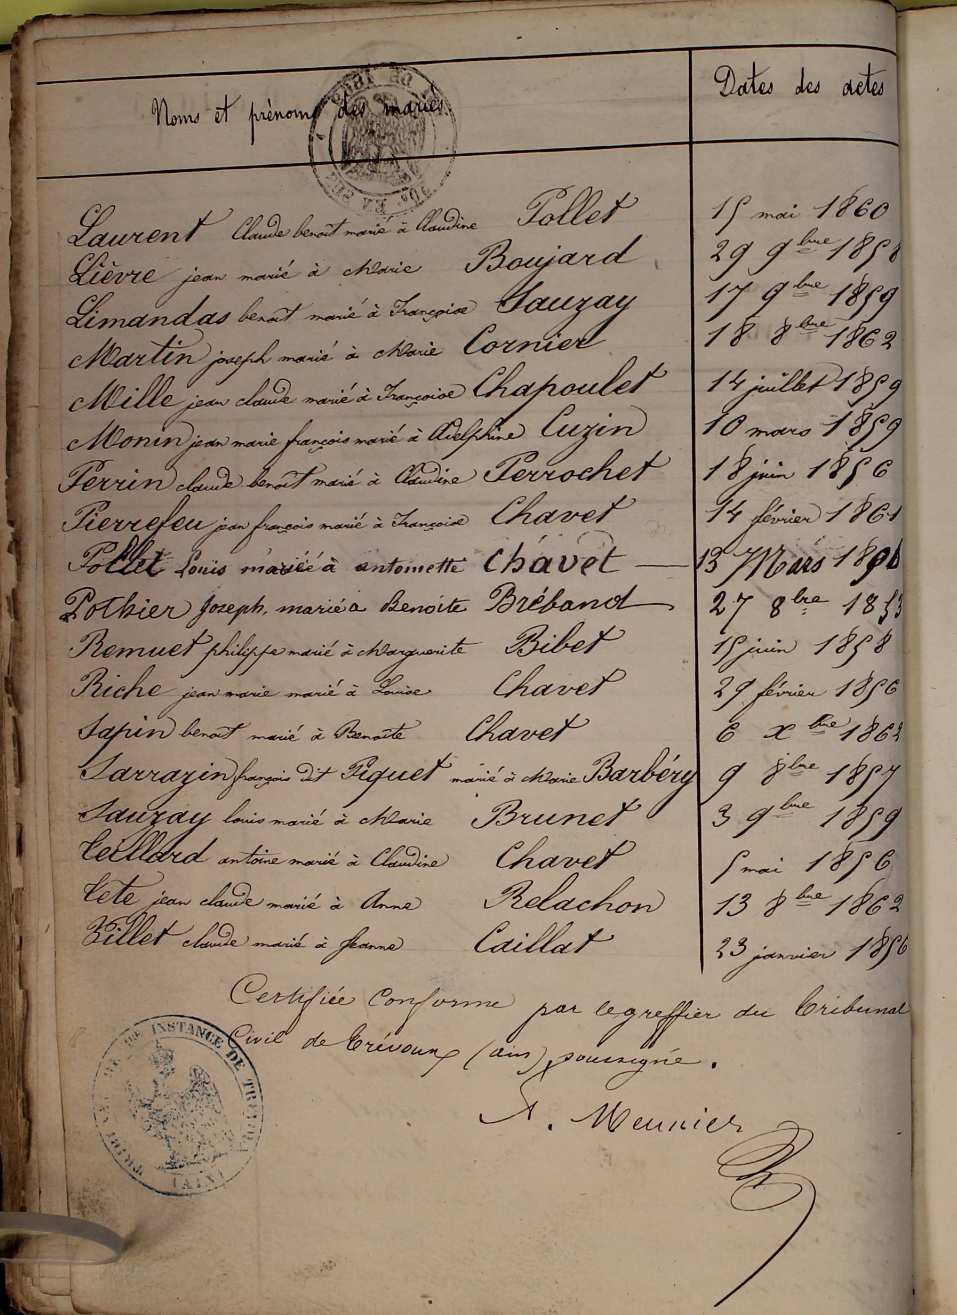 Noms et prénoms des mariés. Dates des actes
Laurent Claude benoit marié à Claudine Pollet 15 mai 1860
Lièvre jean marié à Marie Boujard 29 9bre 1858
Limandas benoit marié à Françoise Sauzay 17 9bre 1859
Martin joseph marié à Marie Cornier 18 8bre 1862
Mille jean claude marié à Françoise Chapoulet 14 juillet 1859
Monin jean marie françois marié à Adelphine Cuzin 10 mars 1859
Perrin claude benoit marié à Claudine Perrochet 18 juin 1856
Pierrefeu jean françois marié à Françoise Chavet 14 février 1861
Pollet Louis marié à antoinette Chavet 13 Mars
Pothier Joseph, marié a Benoite Breband 27 8bre 1853
Remuet philippe marié à Marguerite Bibet 15 juin 1858
Riche jean marie marié à Louise Chavet 29 février 1856
Sapin benoit marié à Benoîte Chavet 6 Xbre 1862
Sarrazin françois dit Piquet marié à Marie Barbéry 9 8bre 1857
Sauzay louis marié à Marie Brunet 3 9bre 1859
Teillard antoine marié à Claudine Chavet 5 mai 1856
Tete jean claude marié à Anne Relachon 13 8bre 1862
Billet claude marié à Jeanne Caillat 23 janvier 1856
Certifiée Conforme par le greffier du tribunal
Civil de trévoux (ain) soussigné.
A. Meunier
INSTANCE DE TREVOUX
(AIN)